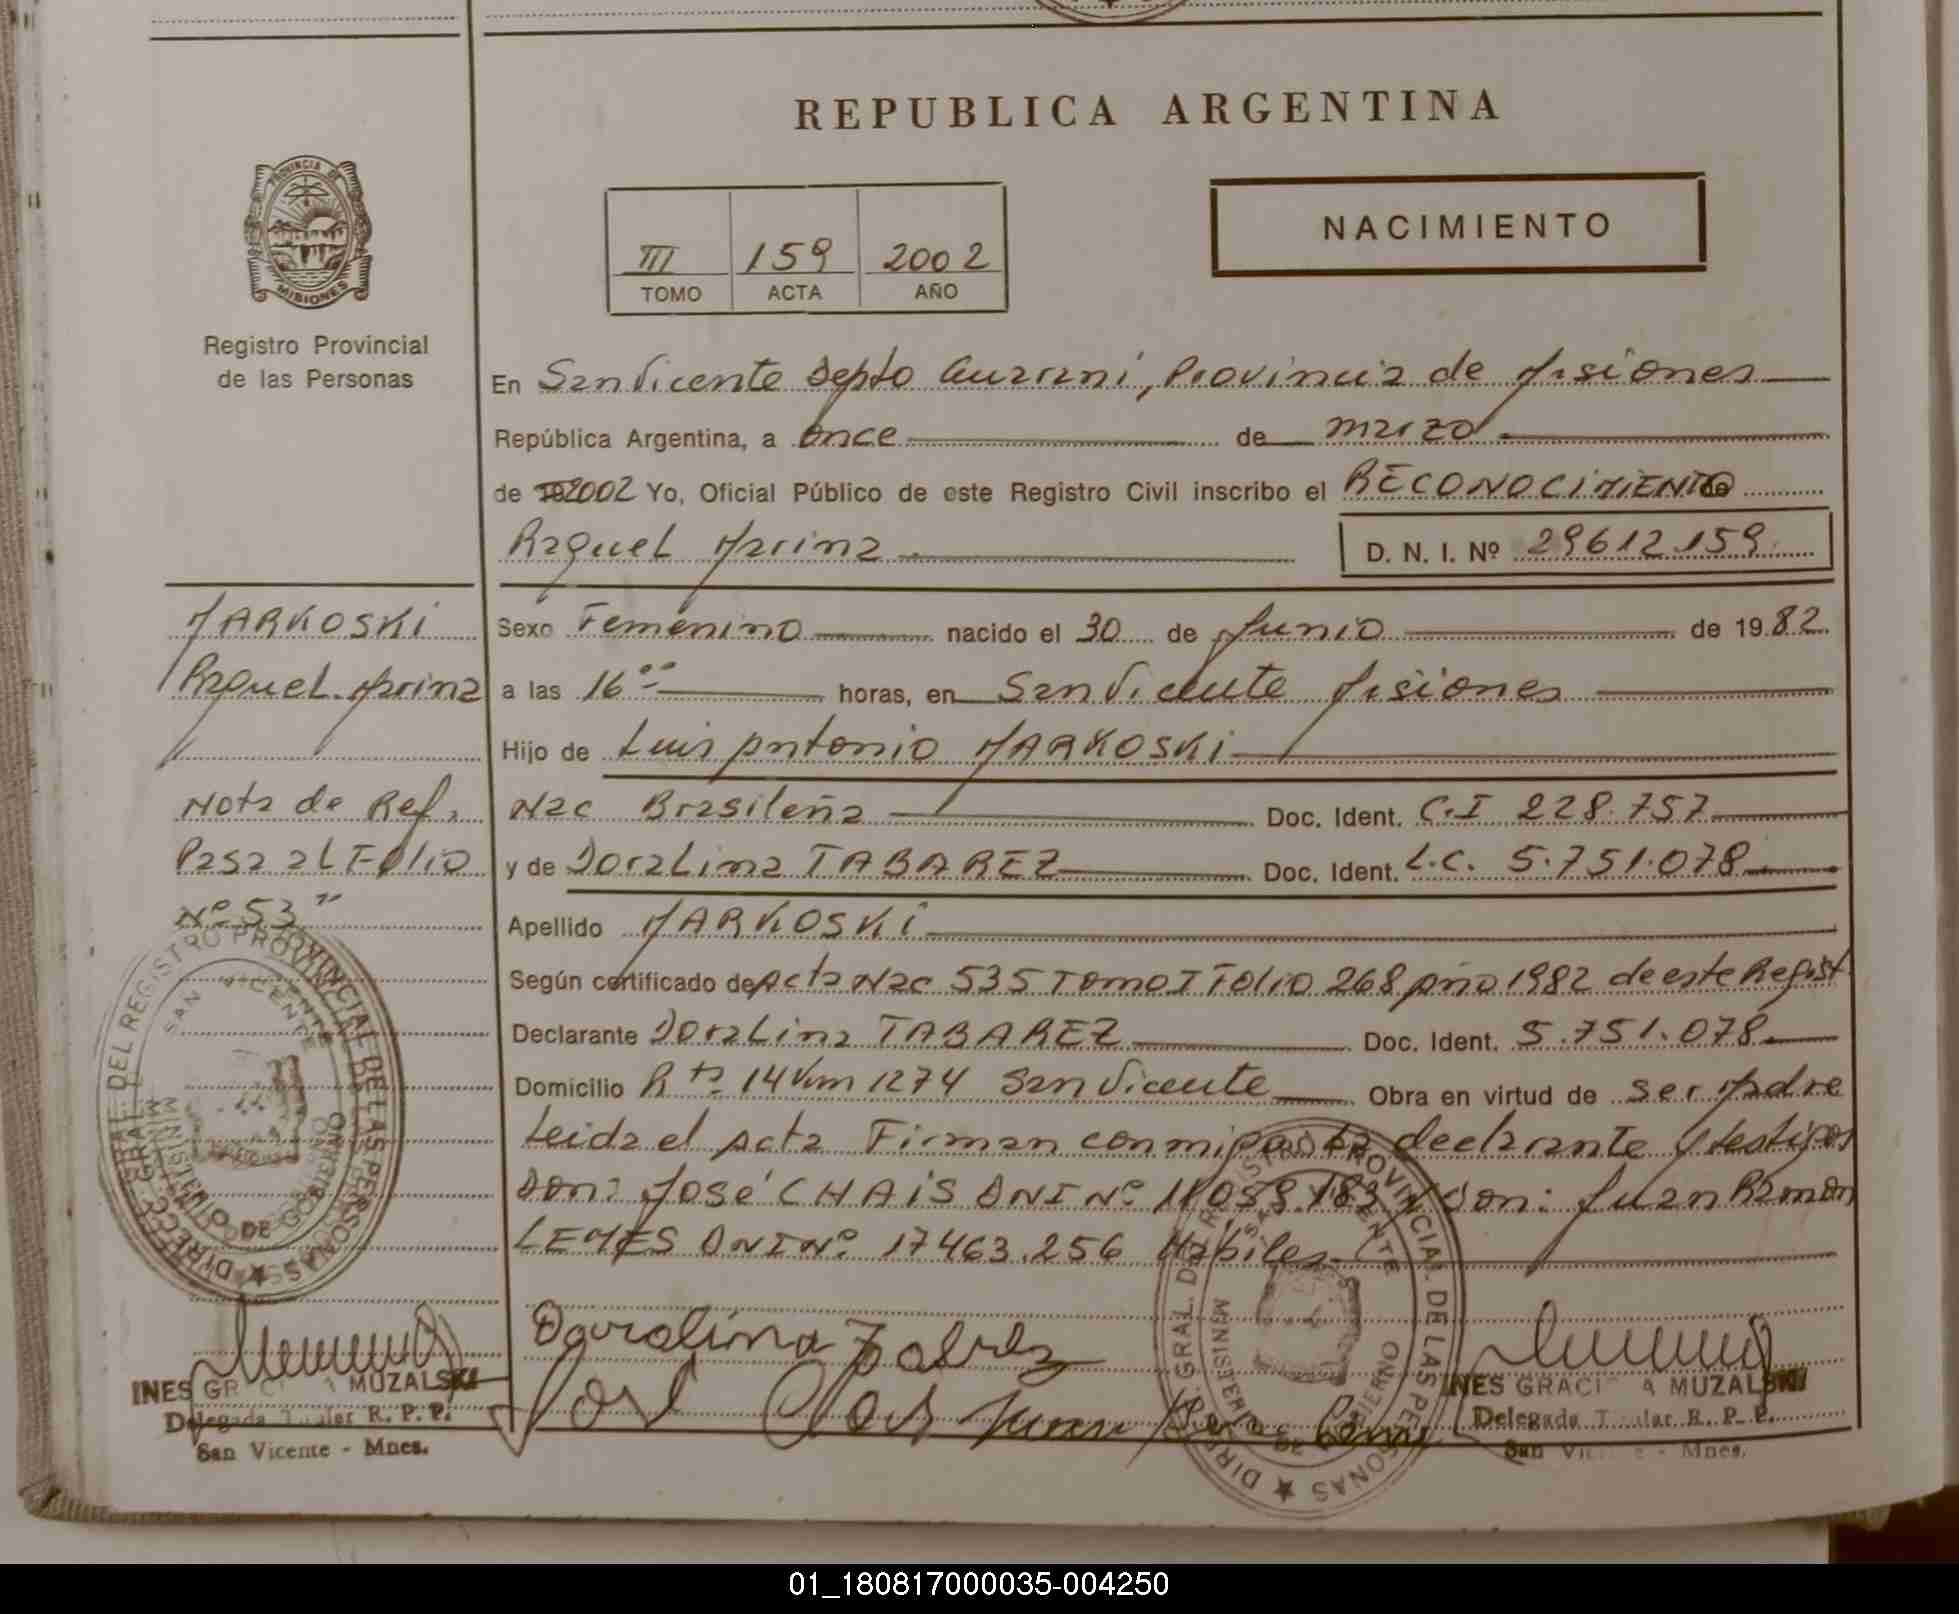 REPUBLICA ARGENTINA
PROVINCIA DE
MISIONES
Registro Provincial
de las Personas
III 159 2002
TOMO ACTA AÑO
NACIMIENTO
En San Vicente Depto Guarani, Provincia de Misiones
República Argentina, a once de marzo
de 2002 Yo, Oficial Público de este Registro Civil inscribo el RECONOCIMIENTO de
Raquel Marina D. N. I. Nº 29612.159
MARKOSKI
Raquel Marina
Nota de Ref.
Pasa al Folio
Nº 53"
Sexo Femenino nacido el 30 de Junio de 1982
a las 16ºº horas, en San Vicente Misiones
Hijo de Luis Antonio MARKOSKI
Nac Brasileña Doc. Ident. C.I 228.757
y de Doralina TABAREZ Doc. Ident. L.C. 5.751.078
Apellido MARKOSKI
Según certificado de Acta Nac 535 Tomo I Folio 268 Año 1982 de este Regist
Declarante Doralina TABAREZ Doc. Ident. 5.751.078
Domicilio Rta 14 Km 1274 San Vicente Obra en virtud de ser Madre
Leida el Acta Firman conmigo la declarante y testigos
Don: José CHAIS DNI Nº 11.059.183 y Don: Juan Ramon
LEMES DNI Nº 17463.256 Habiles
DIREC. GRAL. DEL REGISTRO PROVINCIAL DE LAS PERSONAS
SAN VICENTE
MINISTERIO DE GOBIERNO
DIREC. GRAL. DEL REGISTRO PROVINCIAL DE LAS PERSONAS
SAN VICENTE
MINISTERIO DE GOBIERNO
INES GRACIELA MUZALSKI
Delegada Titular R. P. P.
San Vicente - Mnes.
INES GRACIELA MUZALSKI
Delegada Titular R. P. P.
San Vicente - Mnes.
01_180817000035-004250